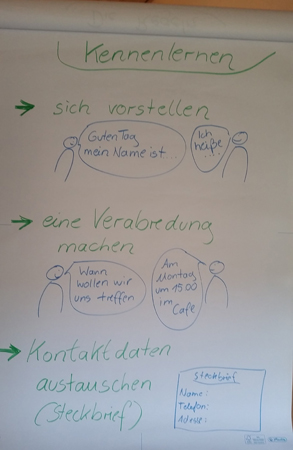 Kennenlernen
→ sich vorstellen
Guten Tag
mein Name ist...
Ich
heiße
...
→ eine Verabredung
machen
Wann
wollen wir
uns treffen
Am
Montag
um 15.00
im
Cafe
→ Kontaktdaten
austauschen
(Steckbrief)
Steckbrief
Name:
Telefon:
Adresse: